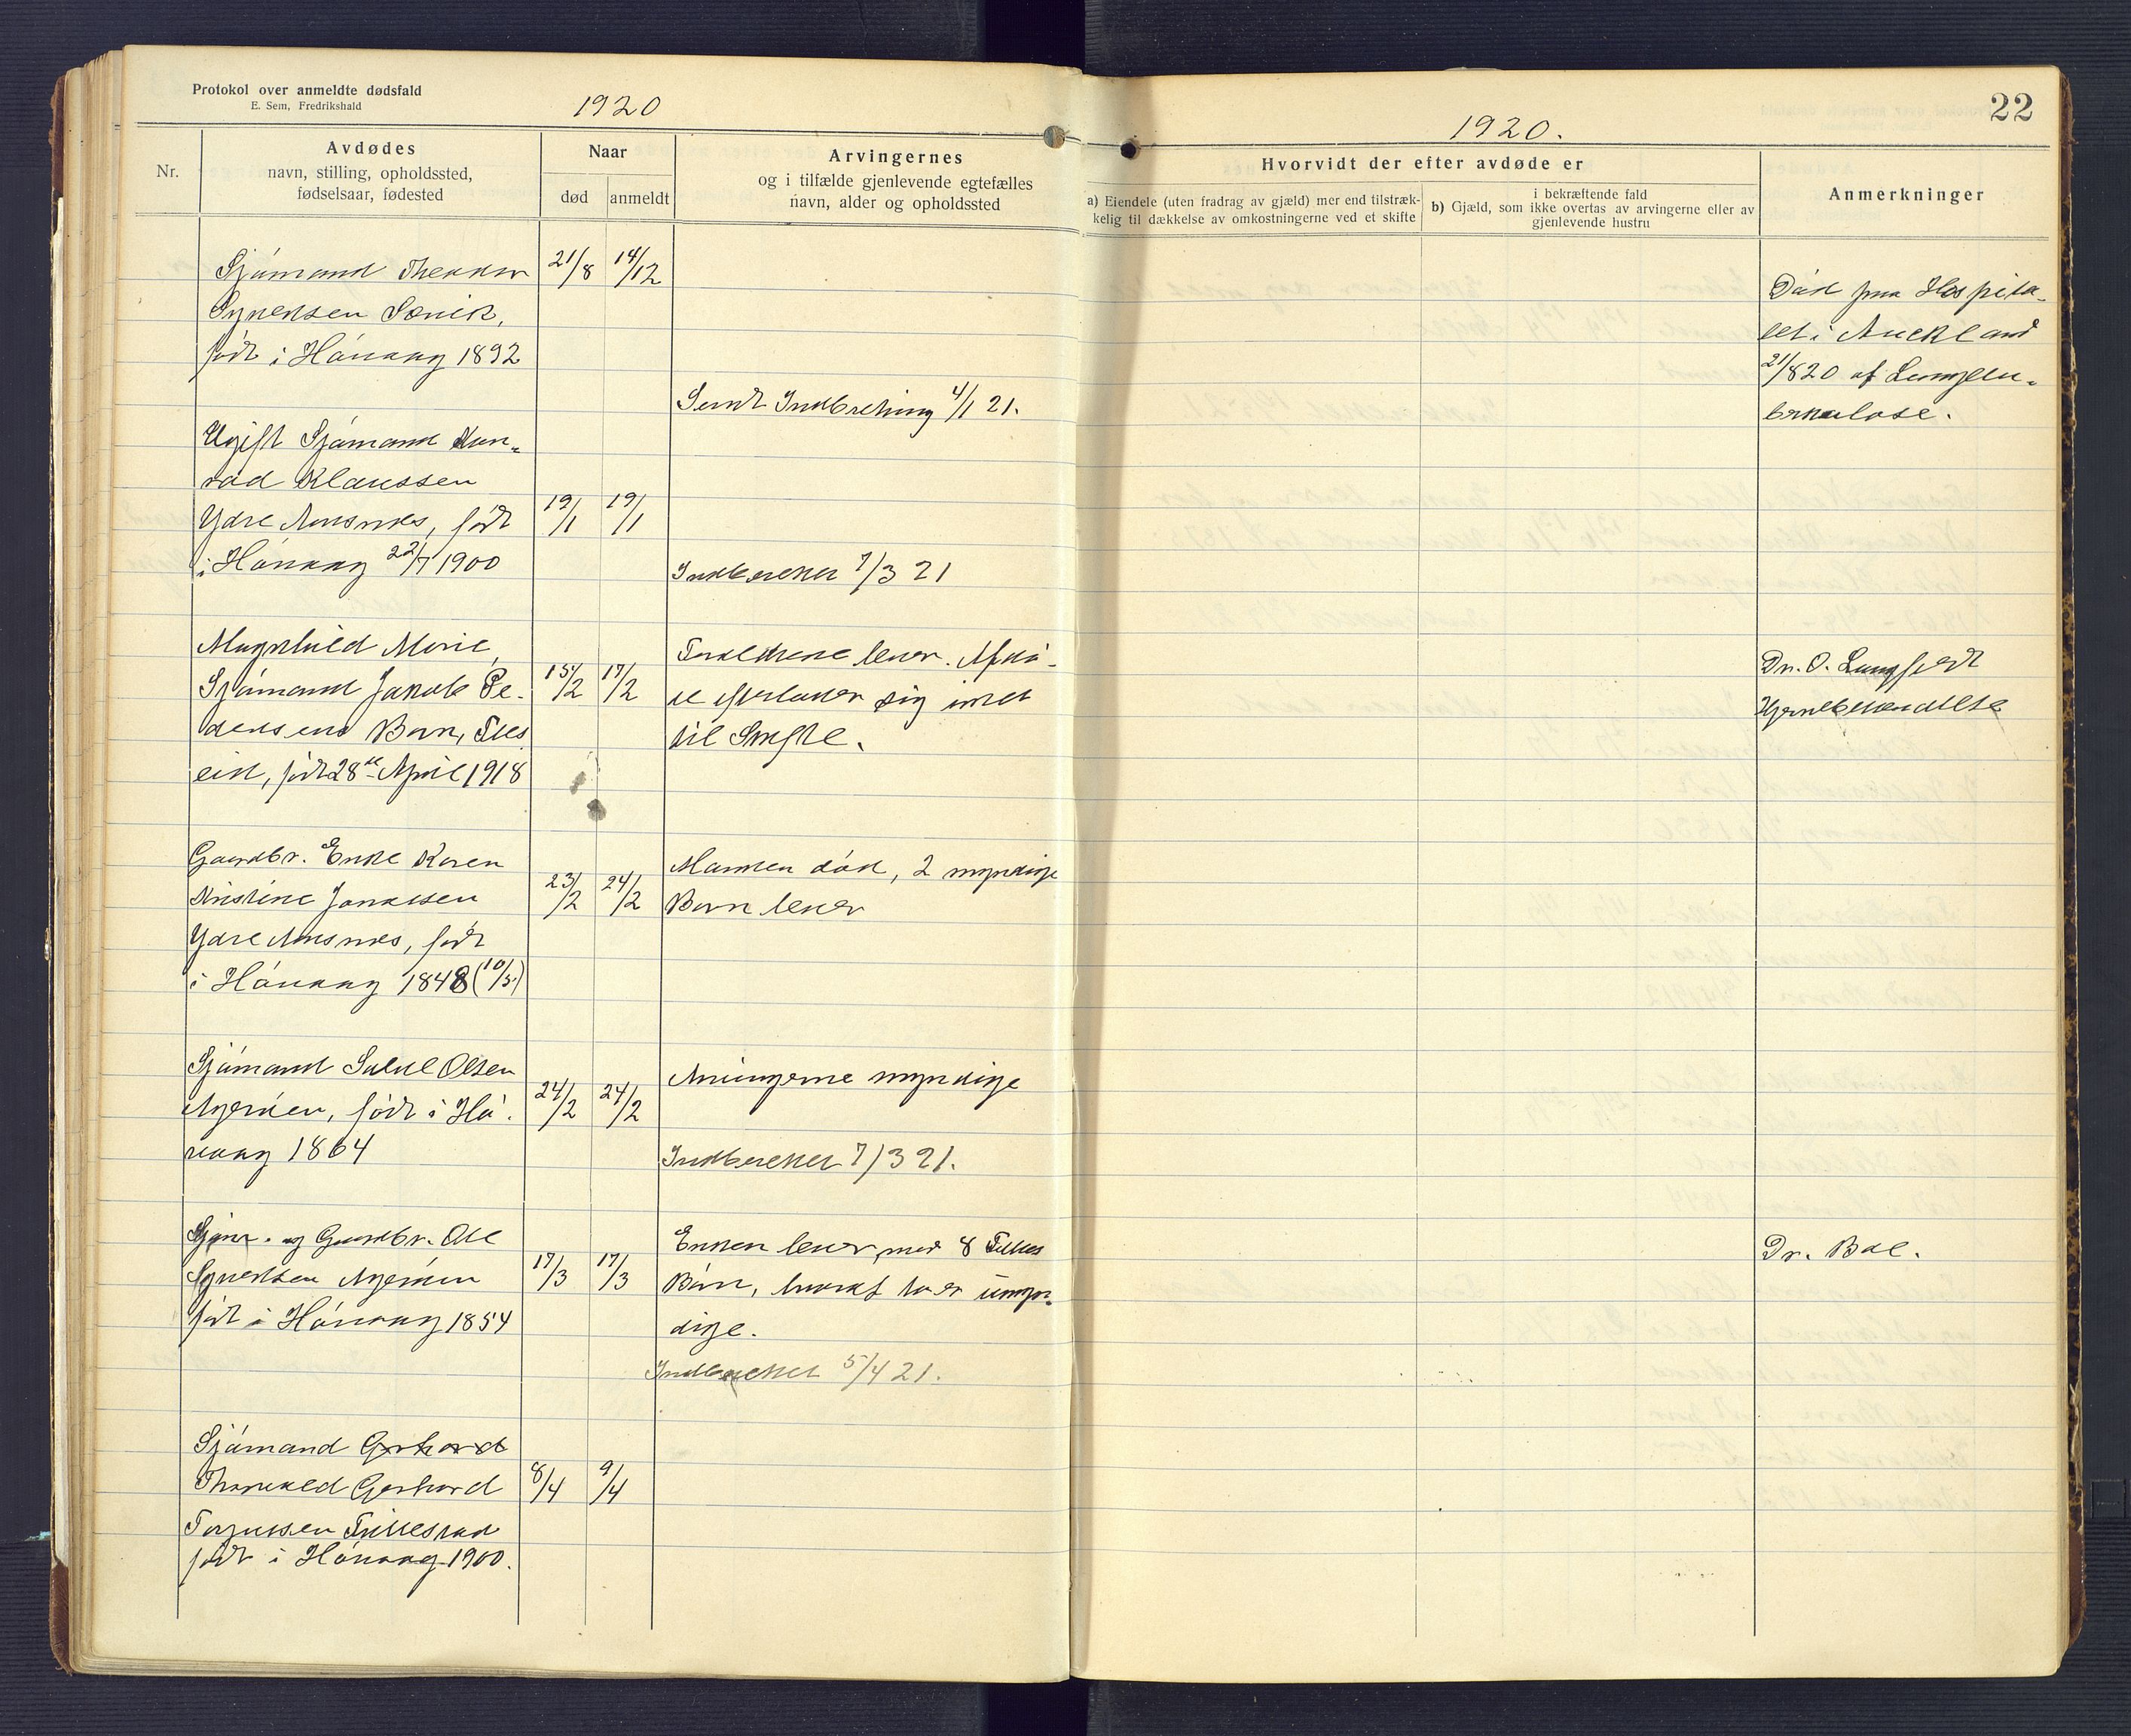 Protokol over anmeldte dødsfald
E. Sem, Fredrikshald
1920
Nr.
Avdødes
navn, stilling, opholdssted,
fødselsaar, fødested
Naar
død
anmeldt
Arvingernes
og i tilfælde gjenlevende egtefælles
navn, alder og opholdssted
Sjømand
21/8 14/12
født i Høvaag 1892
Sendt Indberetning 4/1 21.
Ugift Sjømand Kon-
rad Klaussen
Ydre Aasnes, født
i Høvaag 22/7 1900
19/1 19/1
Indberettet 7/3 21
Magnhild Marie,
Sjømand Jakob Pe-
dersens Barn,
født 28de April 1918
15/2 17/2
Forældrene lever. Afdø-
de efterlader sig intet
til Skifte.
Gaardbr. Enke Karen
Kristine
Ydre Aasnes, født
i Høvaag 1848 (10/5)
23/2 24/2
Manden død, 2 myndige
Børn lever
Sjømand Salve Olsen
Agerøen, født i Hø-
vaag 1864
24/2 24/2
Arvingerne myndige
Indberettet 7/3 21.
Sjøm. og Gaardbr. Ole
Agerøen
født i Høvaag 1854
17/3 17/3
Enken lever, med 8 Fælles
Børn, hvoraf to er umyn-
dige.
Indberettet 5/4 21.
Sjømand Gerhard
Thorvald Gerhard
født i Høvaag 1900.
8/4 9/4
22
1920.
Hvorvidt der efter avdøde er
a) Eiendele (uten fradrag av gjæld) mer end tilstræk-
kelig til dækkelse av omkostningerne ved et skifte
i bekræftende fald
b) Gjæld, som ikke overtas av arvingerne eller av
gjenlevende hustru
Anmerkninger
Død paa Hospita-
let i Auckland
21/8 20 af Lungetu-
berkulose.
Dr. O. Langfeldt
Hjernebetændelse
Dr. Boe.